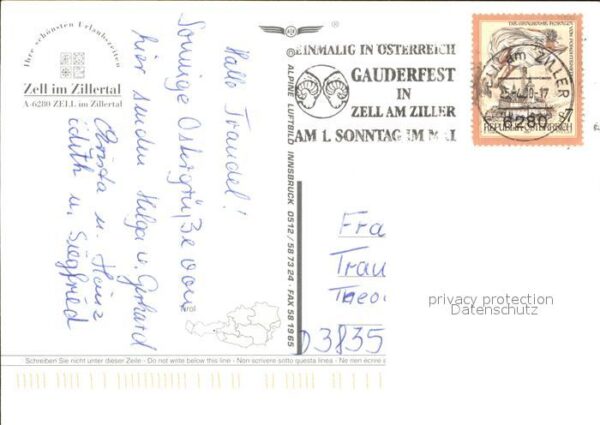 Ihre schönsten Urlaubszeiten
Zell im Zillertal
A-6280 ZELL im Zillertal
Hallo Traudel!
Sonnige Ostergrüße von
hier senden Helga u. Gerhard
Christa u. Heinz
Edith u. Siegfried
© ALPINE LUFTBILD INNSBRUCK 0512 / 58 73 24 · FAX 58 19 65
®
EINMALIG IN ÖSTERREICH
GAUDERFEST
IN
ZELL AM ZILLER
AM 1. SONNTAG IM MAI
am ZILLER
6280
REPUBLIK ÖSTERREICH
Fra
Trau
Theo
D 3835
privacy protection
Datenschutz
Tirol
Schreiben Sie nicht unter dieser Zeile - Do not write below this line - Non scrivere sotto questa linea - Ne rien écrire